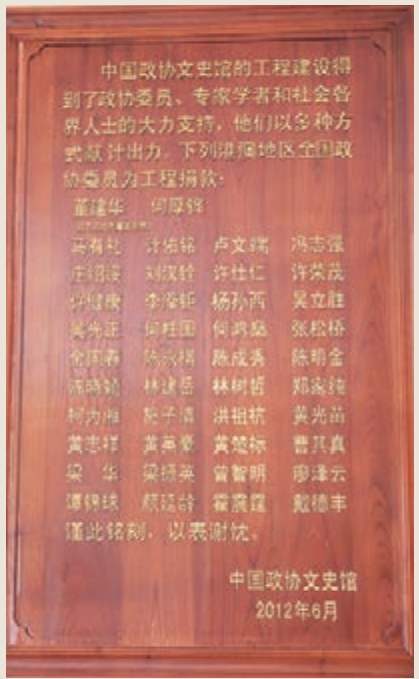 中国政协文史馆的工程建设得
到了政协委员、专家学者和社会各
界人士的大力支持，他们以多种方
式献计出力。下列港澳地区全国政
协委员为工程捐款：
董建华 何厚铧
马有礼 计佑铭 卢文端 冯志强
庄绍绥 刘汉铨 许仕仁 许荣茂
许健康 李泽钜 杨孙西 吴立胜
吴光正 何柱国 何鸿燊 张松桥
余国春 陈永棋 陈成秀 陈明金
林建岳 林树哲 郑家纯
柯为湘 施子清 洪祖杭 黄光苗
黄志祥 黄英豪 黄楚标 曹其真
梁 华 梁振英 曾智明 廖泽云
谭锦球 颜延龄 霍震霆 戴德丰
谨此铭刻，以表谢忱。
中国政协文史馆
2012年6月